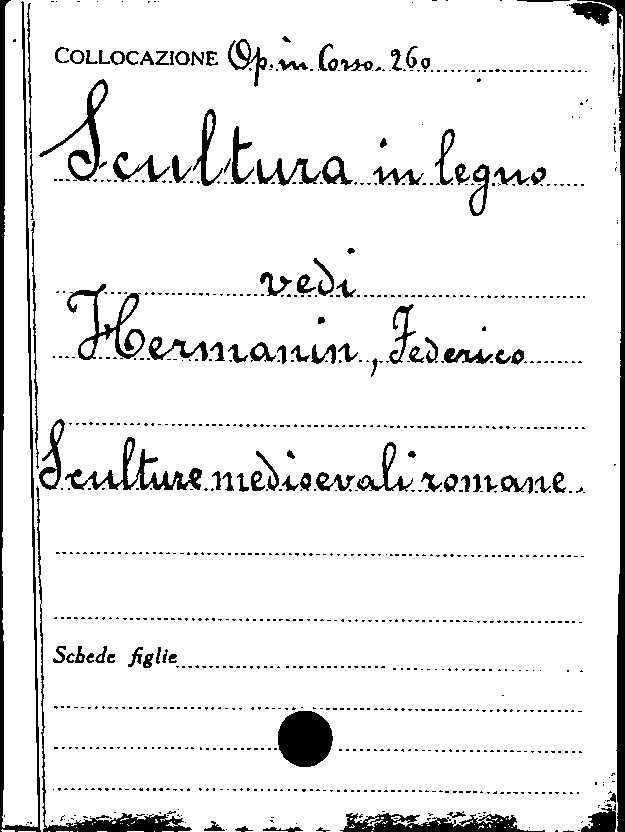 COLLOCAZIONE Op. in Corso. 260
Scultura in legno
vedi
Hermanin, Federico
Sculture medioevali romane.
Schede figlie